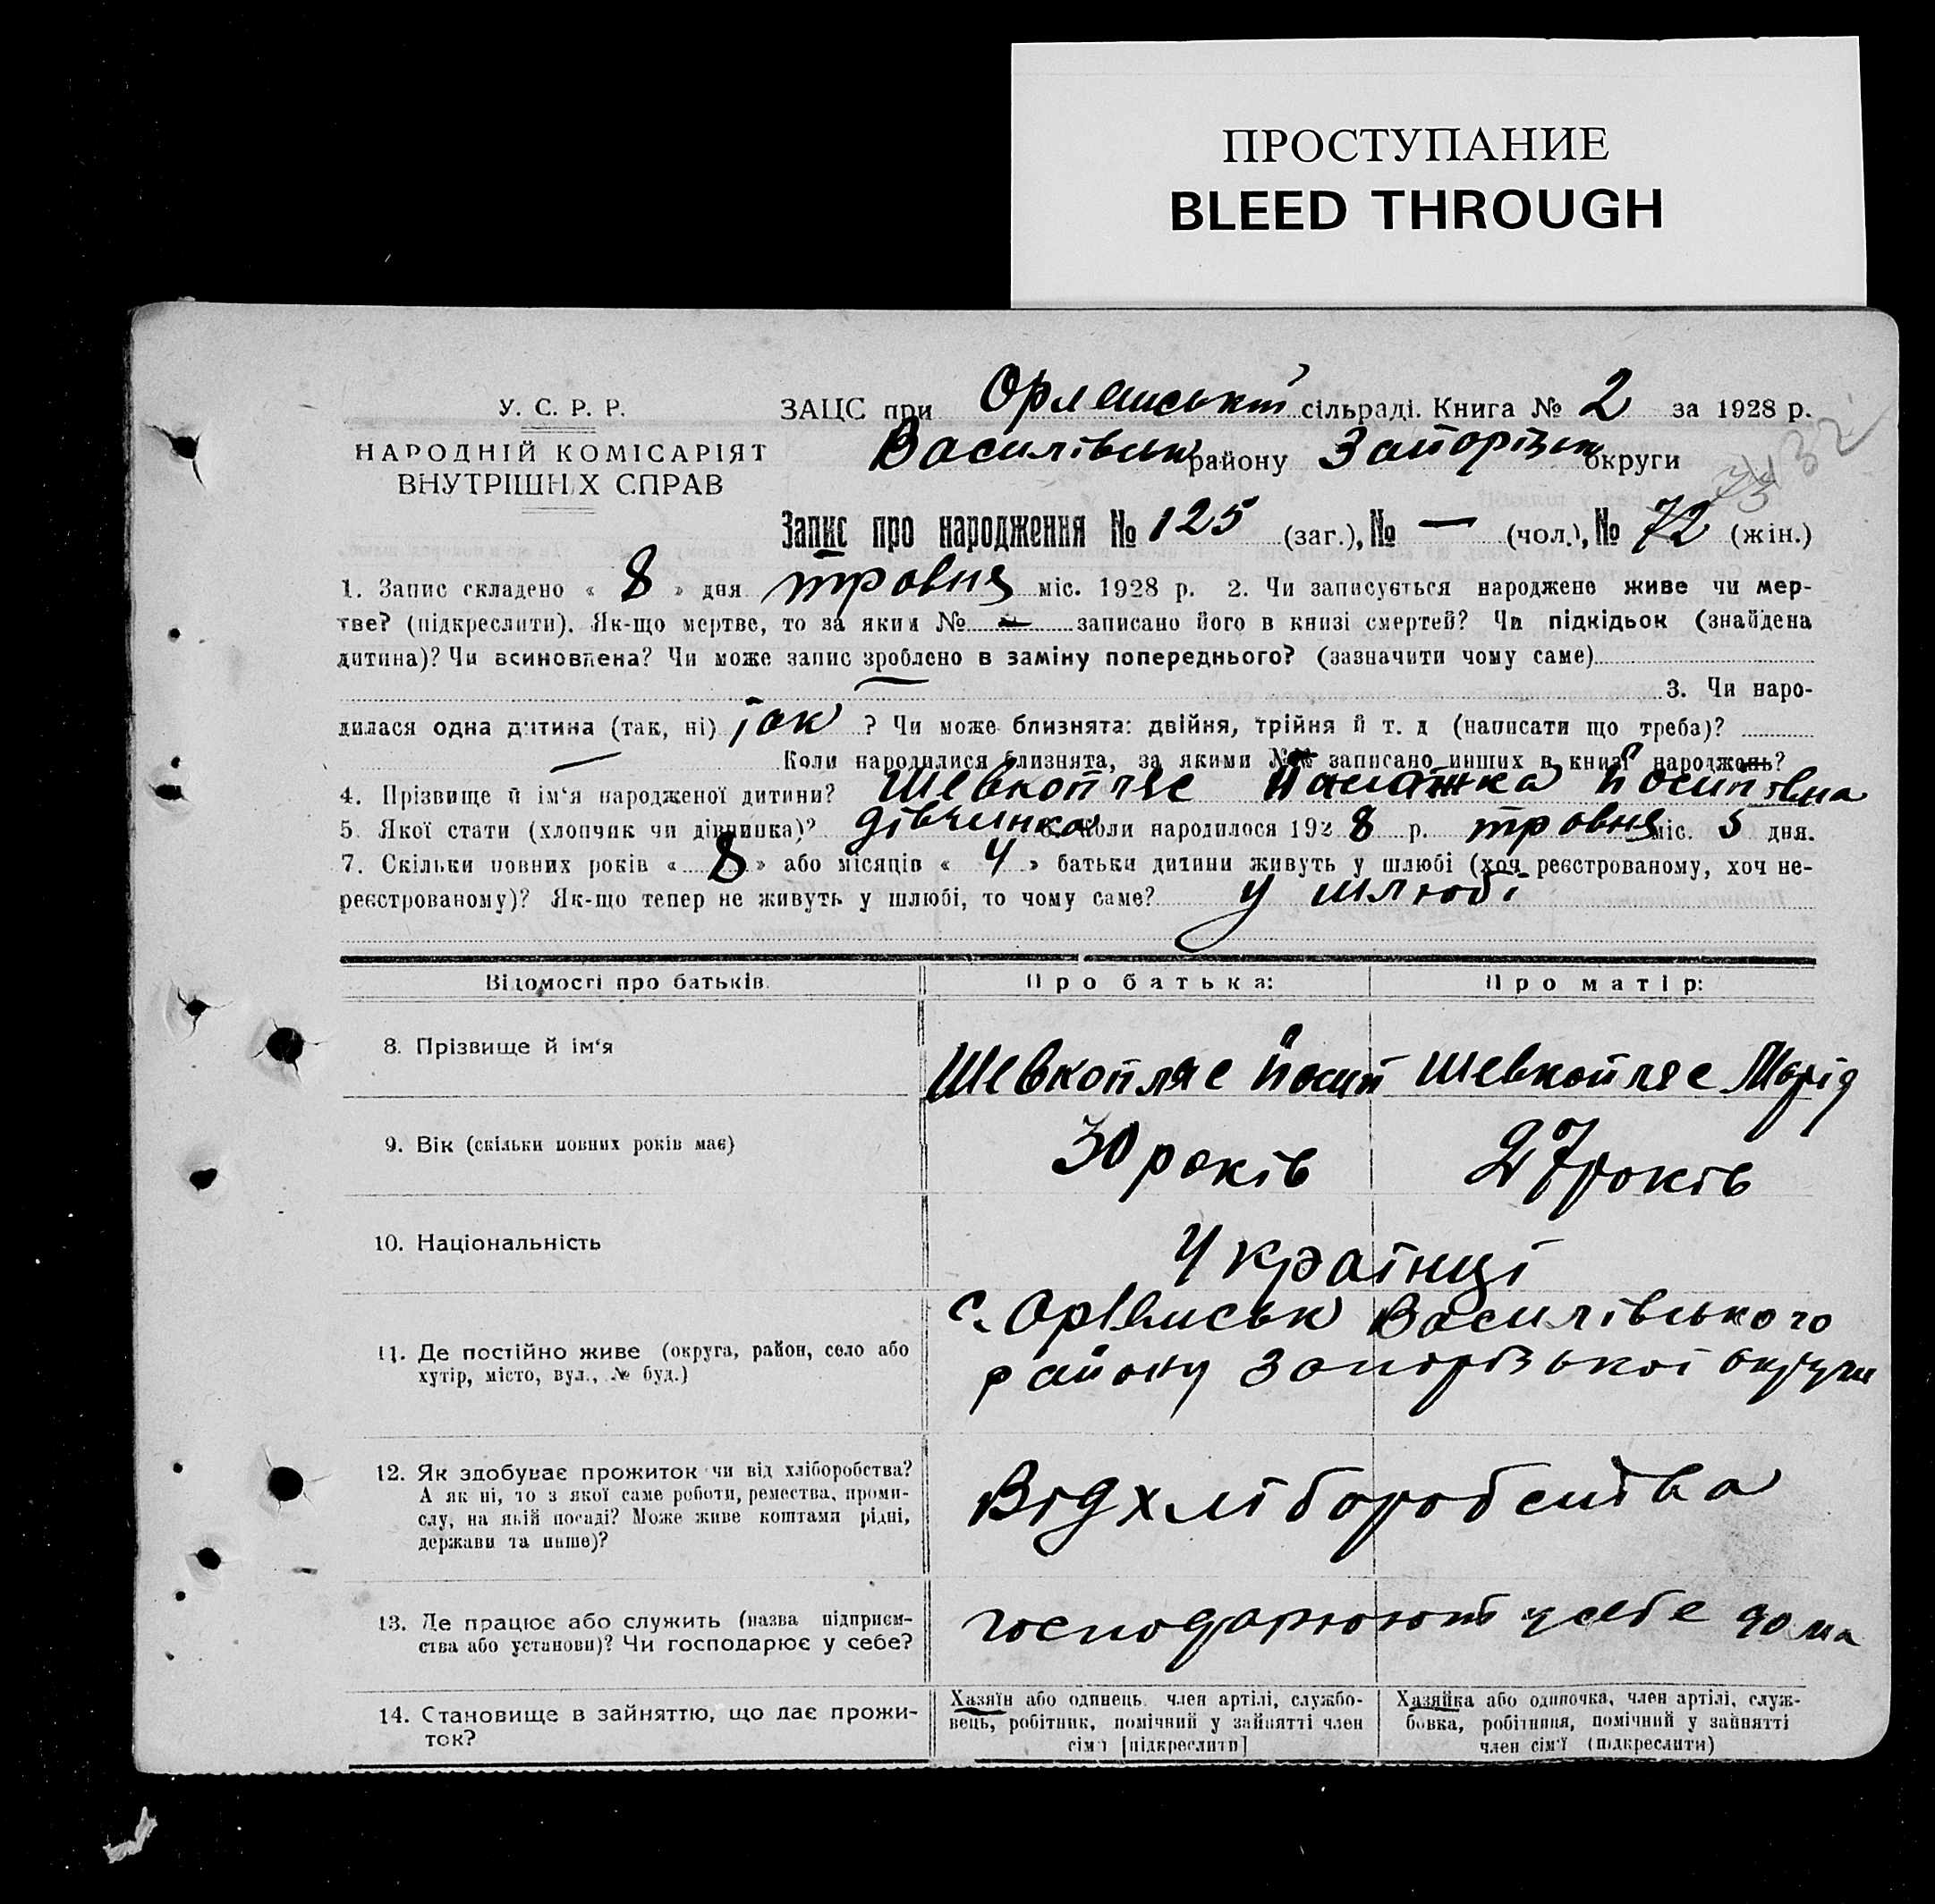 ПРОСТУПАНИЕ
BLEED THROUGH
У. С. Р. Р.
НАРОДНІЙ КОМІСАРІЯТ
ВНУТРІШНІХ СПРАВ
ЗАЦС при сільраді. Книга № 2 за 1928 р.
Василівськ району Запорізьк округи
Запис про народження № 125 (заг.), № — (чол.), № 72 (жін.)
1. Запис складено « 8 » дня травня міс. 1928 р. 2. Чи записується народжене живе чи мер-
тве? (підкреслити). Як-що мертве, то за яким № записано його в книзі смертей? Чи підкідьок (знайдена
дитина)? Чи всиновлена? Чи може запис зроблено в заміну попереднього? (зазначити чому саме)
3. Чи наро-
дилася одна дитина (так, ні) ? Чи може близнята: двійня, трійня й т. д (написати що треба)?
— Коли народилися близнята, за якими №№ записано инших в книзі народжень?
4. Прізвище й ім‘я народженої дитини? Шевкопляс Йосипівна
5 Якої стати (хлопчик чи дівчинка)? дівчинка 6. Коли народилося 1928 р. травня міс. 5 дня.
7. Скільки повних років « 8 » або місяців « 4 » батьки дитини живуть у шлюбі (хоч реєстрованому, хоч не-
реєстрованому)? Як-що тепер не живуть у шлюбі, то чому саме? у шлюбі
Відомості про батьків. Про батька: Про матір:
8. Прізвище й ім‘я Шевкопляс Йосип Шевкопляс Марія
9. Вік (скільки повних років має) 30 років 27 років
10. Національність Українці
11. Де постійно живе (округа, район, село або
хутір, місто, вул., № буд.)
с. Василівського
району Запорізької округи
12. Як здобуває прожиток чи від хліборобства?
А як ні, то з якої саме роботи, ремества, проми-
слу, на якій посаді? Може живе коштами рідні,
держави та инше)?
Від хліборобства
13. Де працює або служить (назва підприєм-
ства або установи)? Чи господарює у себе?
господарюють у себе дома
14. Становище в зайняттю, що дає прожи-
ток?
Хазяїн або одинець, член артілі, службо-
вець, робітник, помічний у зайнятті член
сім‘ї [підкреслити]
Хазяйка або одиночка, член артілі, служ-
бовка, робітниця, помічний у зайнятті
член сім‘ї (підкреслити)